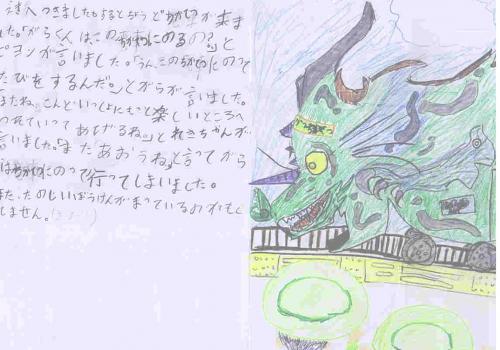 達へつきました。するとちょうど　　　が来ま
した。「がらくんは、この　　　にのるの？」と
ピョンが言いました。「うん、この　　　にのって
たびをするんだ。」とがらが言いました。
またね。こんどいっしょにもっと楽しいところへ
つれていってあげるね。」とれきちゃんが
言いました。「またあおうね」と言ってがら
は　　　にのって行ってしまいました。
また、たのしいぼうけんがまっているのかもし
れません。